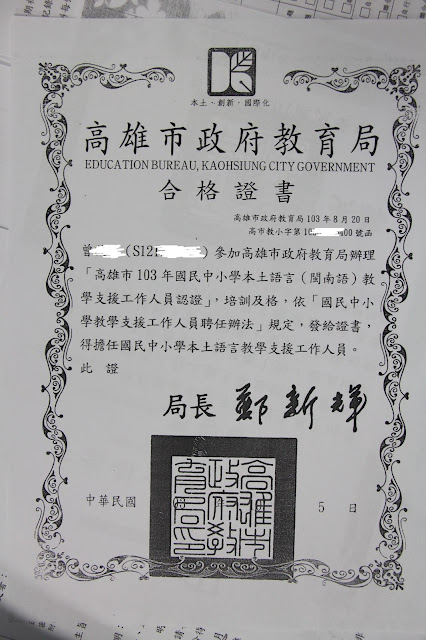 本土‧創新‧國際化
高雄市政府教育局
EDUCATION BUREAU, KAOHSIUNG CITY GOVERNMENT
合格證書
高雄市政府教育局103年8月20日
高市教小字第10 00號函
曾 (S12: )參加高雄市政府教育局辦理
「高雄市103年國民中小學本土語言(閩南語)教
學支援工作人員認證」,培訓及格,依「國民中小
學教學支援工作人員聘任辦法」規定,發給證書,
得擔任國民中小學本土語言教學支援工作人員。
此證
局長 鄭新輝
高雄市政府教育局印
中華民國 5日